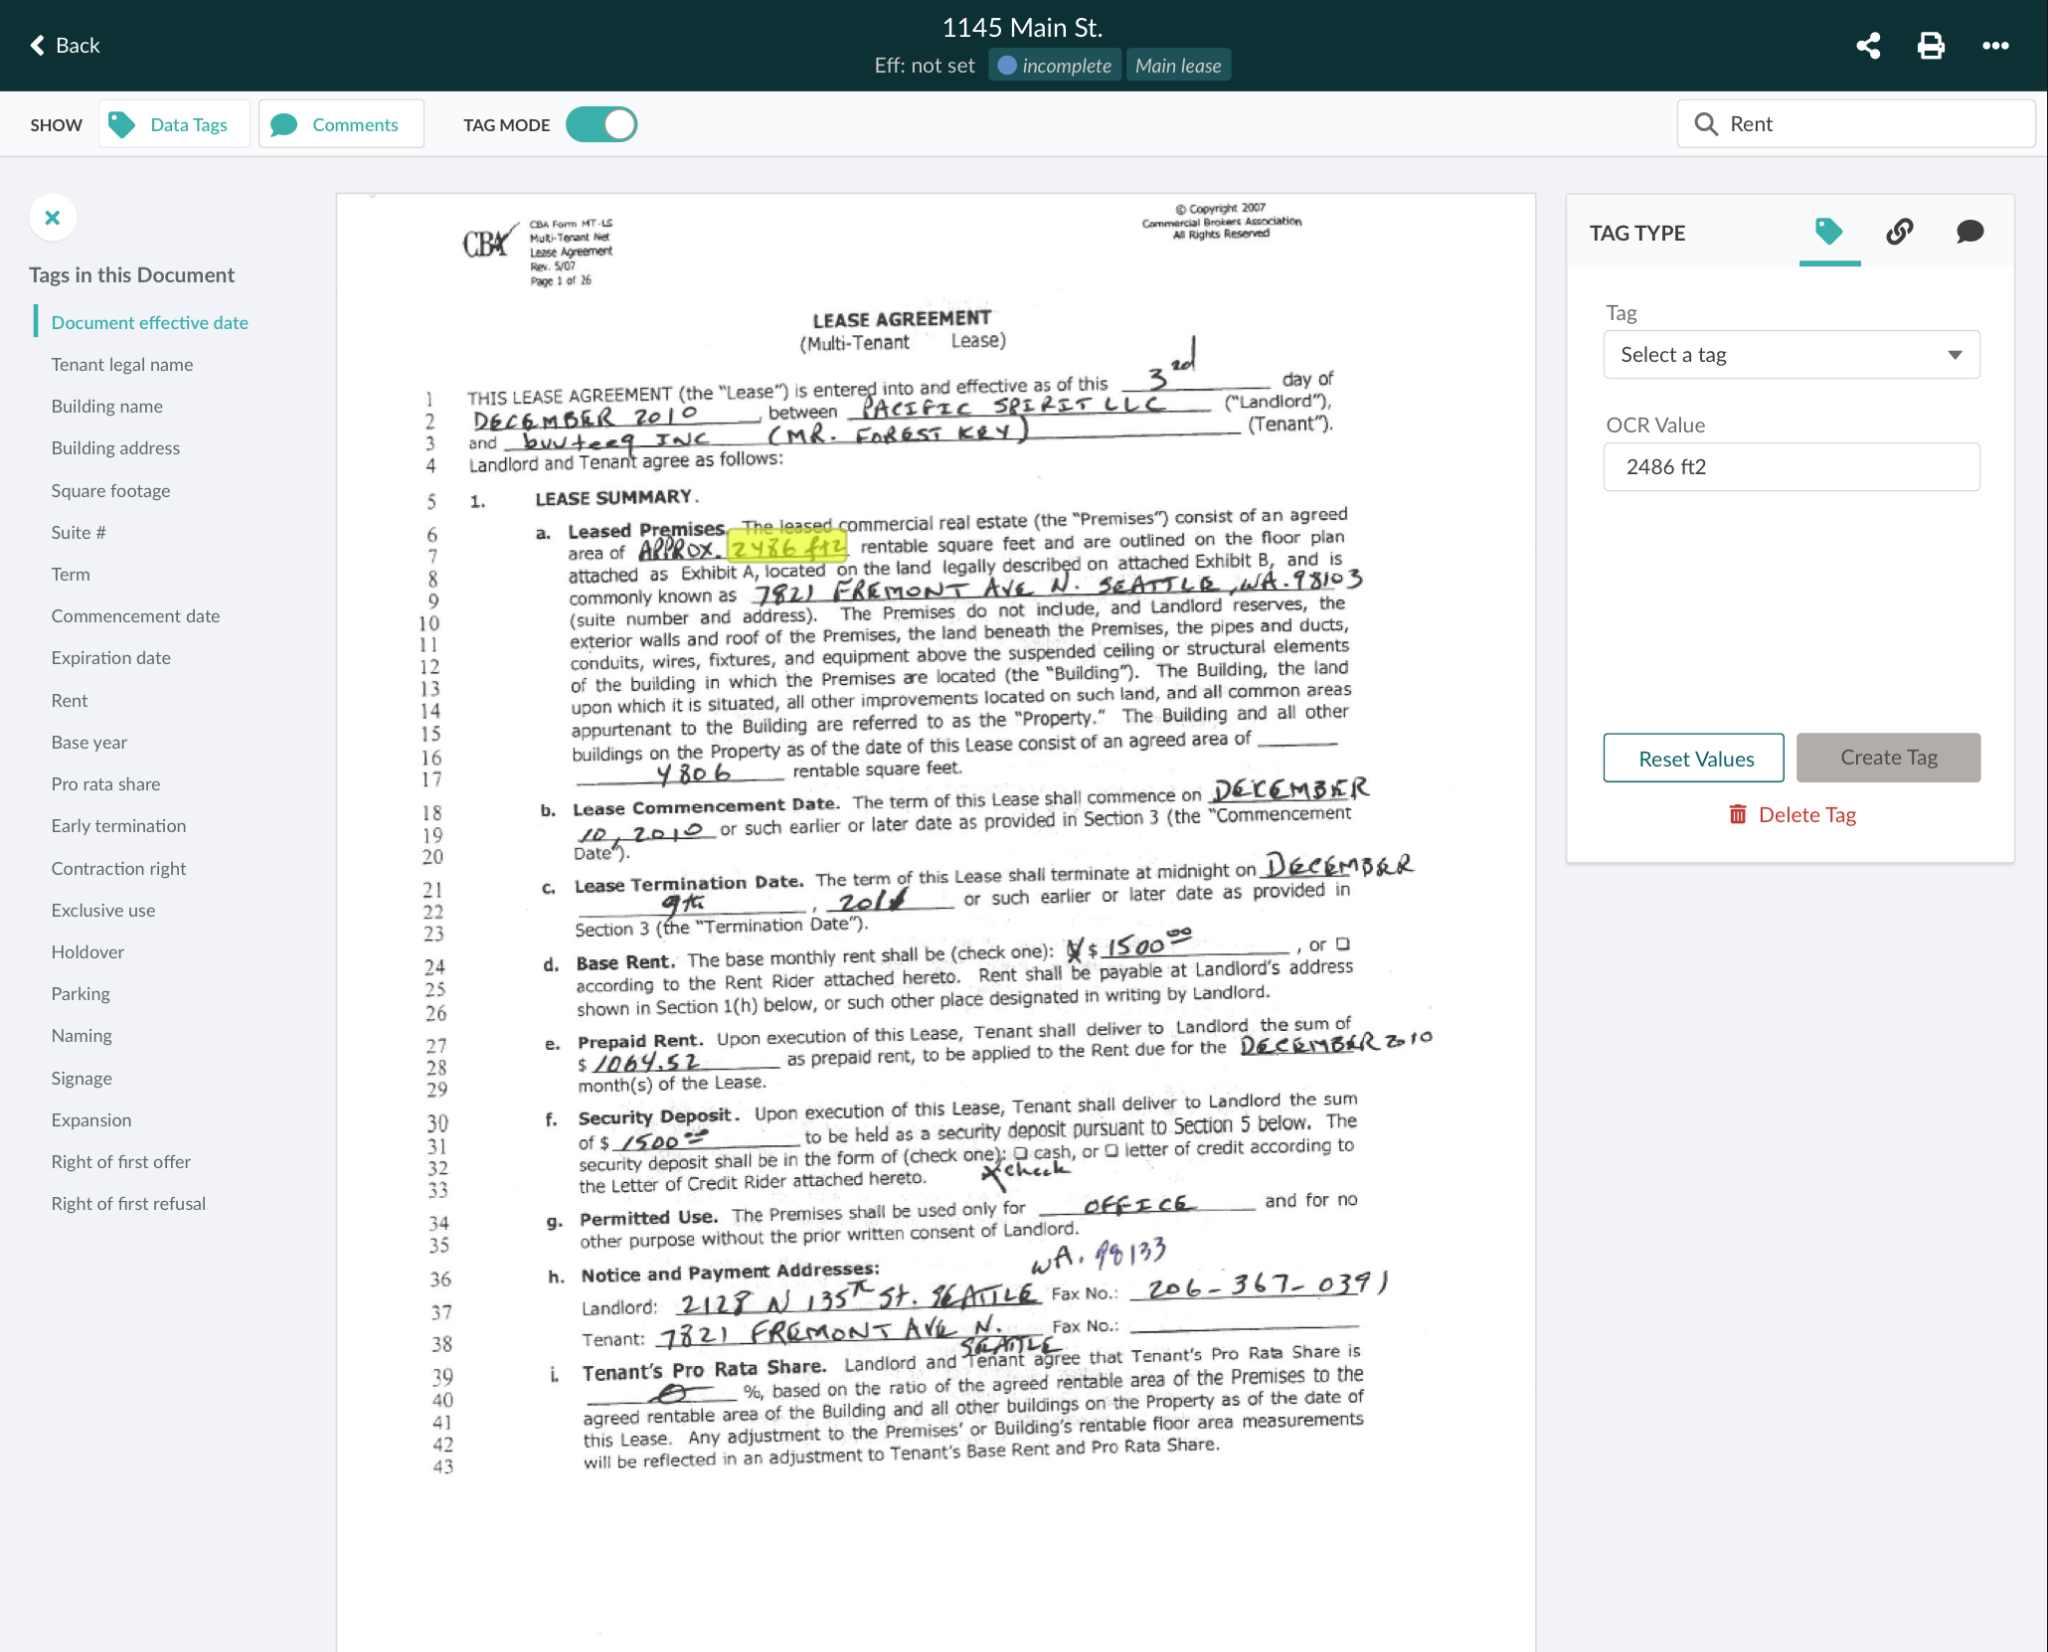 1145 Main St.
Back
Eff: not set incomplete Main lease
SHOW Data Tags Comments TAG MODE
Rent
Tags in this Document
Document effective date
Tenant legal name
Building name
Building address
Square footage
Suite #
Term
Commencement date
Expiration date
Rent
Base year
Pro rata share
Early termination
Contraction right
Exclusive use
Holdover
Parking
Naming
Signage
Expansion
Right of first offer
Right of first refusal
CBA
CBA Form MT-LS
Multi-Tenant Net
Lease Agreement
Rev. 5/07
Page 1 of 26
© Copyright 2007
Commercial Brokers Association
All Rights Reserved
LEASE AGREEMENT
(Multi-Tenant Lease)
1 THIS LEASE AGREEMENT (the "Lease") is entered into and effective as of this 3rd day of
2 DECEMBER 2010 between PACIFIC SPIRIT LLC ("Landlord"),
3 and buuteeq INC (MR. FOREST KEY) (Tenant").
4 Landlord and Tenant agree as follows:
5 1. LEASE SUMMARY.
6 a. Leased Premises. The leased commercial real estate (the "Premises") consist of an agreed
7 area of APPROX. 2486 ft2 rentable square feet and are outlined on the floor plan
8 attached as Exhibit A, located on the land legally described on attached Exhibit B, and is
9 commonly known as 7821 FREMONT AVE N. SEATTLE, WA. 98103
10 (suite number and address). The Premises do not include, and Landlord reserves, the
11 exterior walls and roof of the Premises, the land beneath the Premises, the pipes and ducts,
12 conduits, wires, fixtures, and equipment above the suspended ceiling or structural elements
13 of the building in which the Premises are located (the "Building"). The Building, the land
14 upon which it is situated, all other improvements located on such land, and all common areas
15 appurtenant to the Building are referred to as the "Property." The Building and all other
16 buildings on the Property as of the date of this Lease consist of an agreed area of
17 4806 rentable square feet.
18 b. Lease Commencement Date. The term of this Lease shall commence on DECEMBER
19 10, 2010 or such earlier or later date as provided in Section 3 (the "Commencement
20 Date").
21 c. Lease Termination Date. The term of this Lease shall terminate at midnight on DECEMBER
22 9th, 2011 or such earlier or later date as provided in
23 Section 3 (the "Termination Date").
24 d. Base Rent. The base monthly rent shall be (check one): X $ 1500 00, or ❑
25 according to the Rent Rider attached hereto. Rent shall be payable at Landlord's address
26 shown in Section 1(h) below, or such other place designated in writing by Landlord.
27 e. Prepaid Rent. Upon execution of this Lease, Tenant shall deliver to Landlord the sum of
28 $ 1064.52 as prepaid rent, to be applied to the Rent due for the DECEMBER 2010
29 month(s) of the Lease.
30 f. Security Deposit. Upon execution of this Lease, Tenant shall deliver to Landlord the sum
31 of $ 1500 00 to be held as a security deposit pursuant to Section 5 below. The
32 security deposit shall be in the form of (check one): ❑ cash, or ❑ letter of credit according to
33 the Letter of Credit Rider attached hereto. X check
34 g. Permitted Use. The Premises shall be used only for OFFICE and for no
35 other purpose without the prior written consent of Landlord.
36 h. Notice and Payment Addresses: WA. 98133
37 Landlord: 2128 N 135TH St. SEATTLE Fax No.: 206-367-0391
38 Tenant: 7821 FREMONT AVE N. SEATTLE Fax No.:
39 i. Tenant's Pro Rata Share. Landlord and Tenant agree that Tenant's Pro Rata Share is
40 0 %, based on the ratio of the agreed rentable area of the Premises to the
41 agreed rentable area of the Building and all other buildings on the Property as of the date of
42 this Lease. Any adjustment to the Premises' or Building's rentable floor area measurements
43 will be reflected in an adjustment to Tenant's Base Rent and Pro Rata Share.
TAG TYPE
Tag
Select a tag
OCR Value
2486 ft2
Reset Values Create Tag
Delete Tag